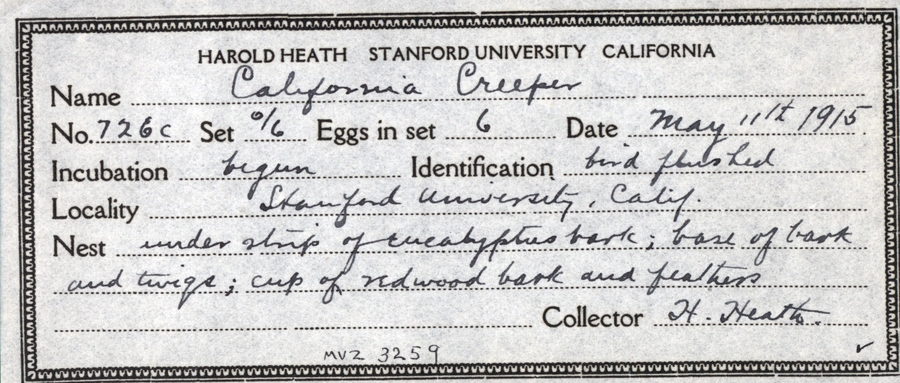 HAROLD HEATH STANFORD UNIVERSITY CALIFORNIA
Name California Creeper
No. 726c Set 0/6 Eggs in set 6 Date May 11th 1915
Incubation begun Identification bird flushed
Locality Stanford University, Calif.
Nest under strip of eucalyptus bark; base of bark
and twigs; cup of redwood bark and feathers
Collector H. Heath.
MVZ 3259 ✓